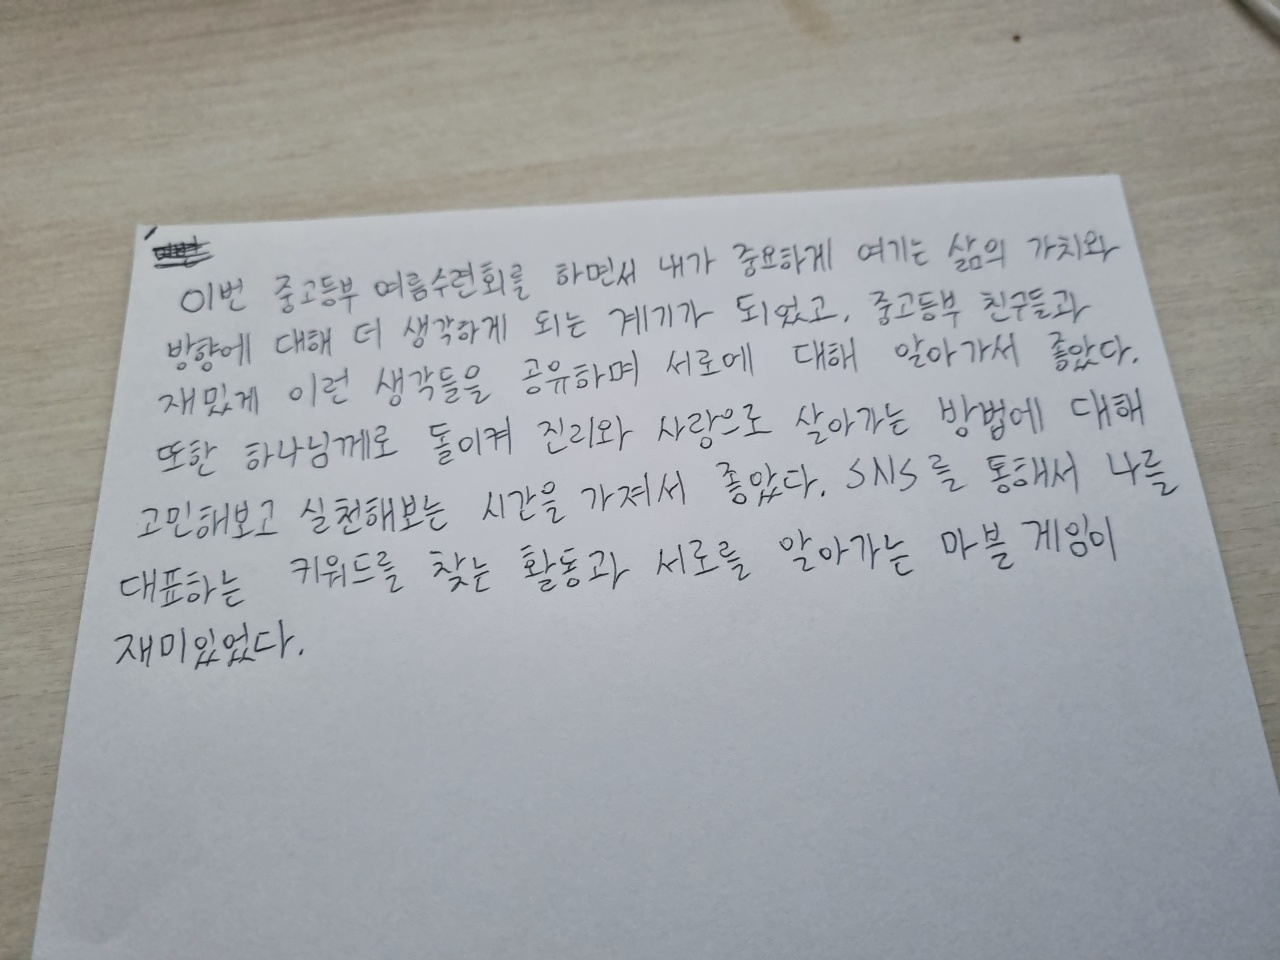 이번 중고등부 여름수련회를 하면서 내가 중요하게 여기는 삶의 가치와
방향에 대해 더 생각하게 되는 계기가 되었고, 중고등부 친구들과
재밌게 이런 생각들을 공유하며 서로에 대해 알아가서 좋았다.
또한 하나님께로 돌이켜 진리와 사랑으로 살아가는 방법에 대해
고민해보고 실천해보는 시간을 가져서 좋았다. SNS를 통해서 나를
대표하는 키워드를 찾는 활동과 서로를 알아가는 마블 게임이
재미있었다.